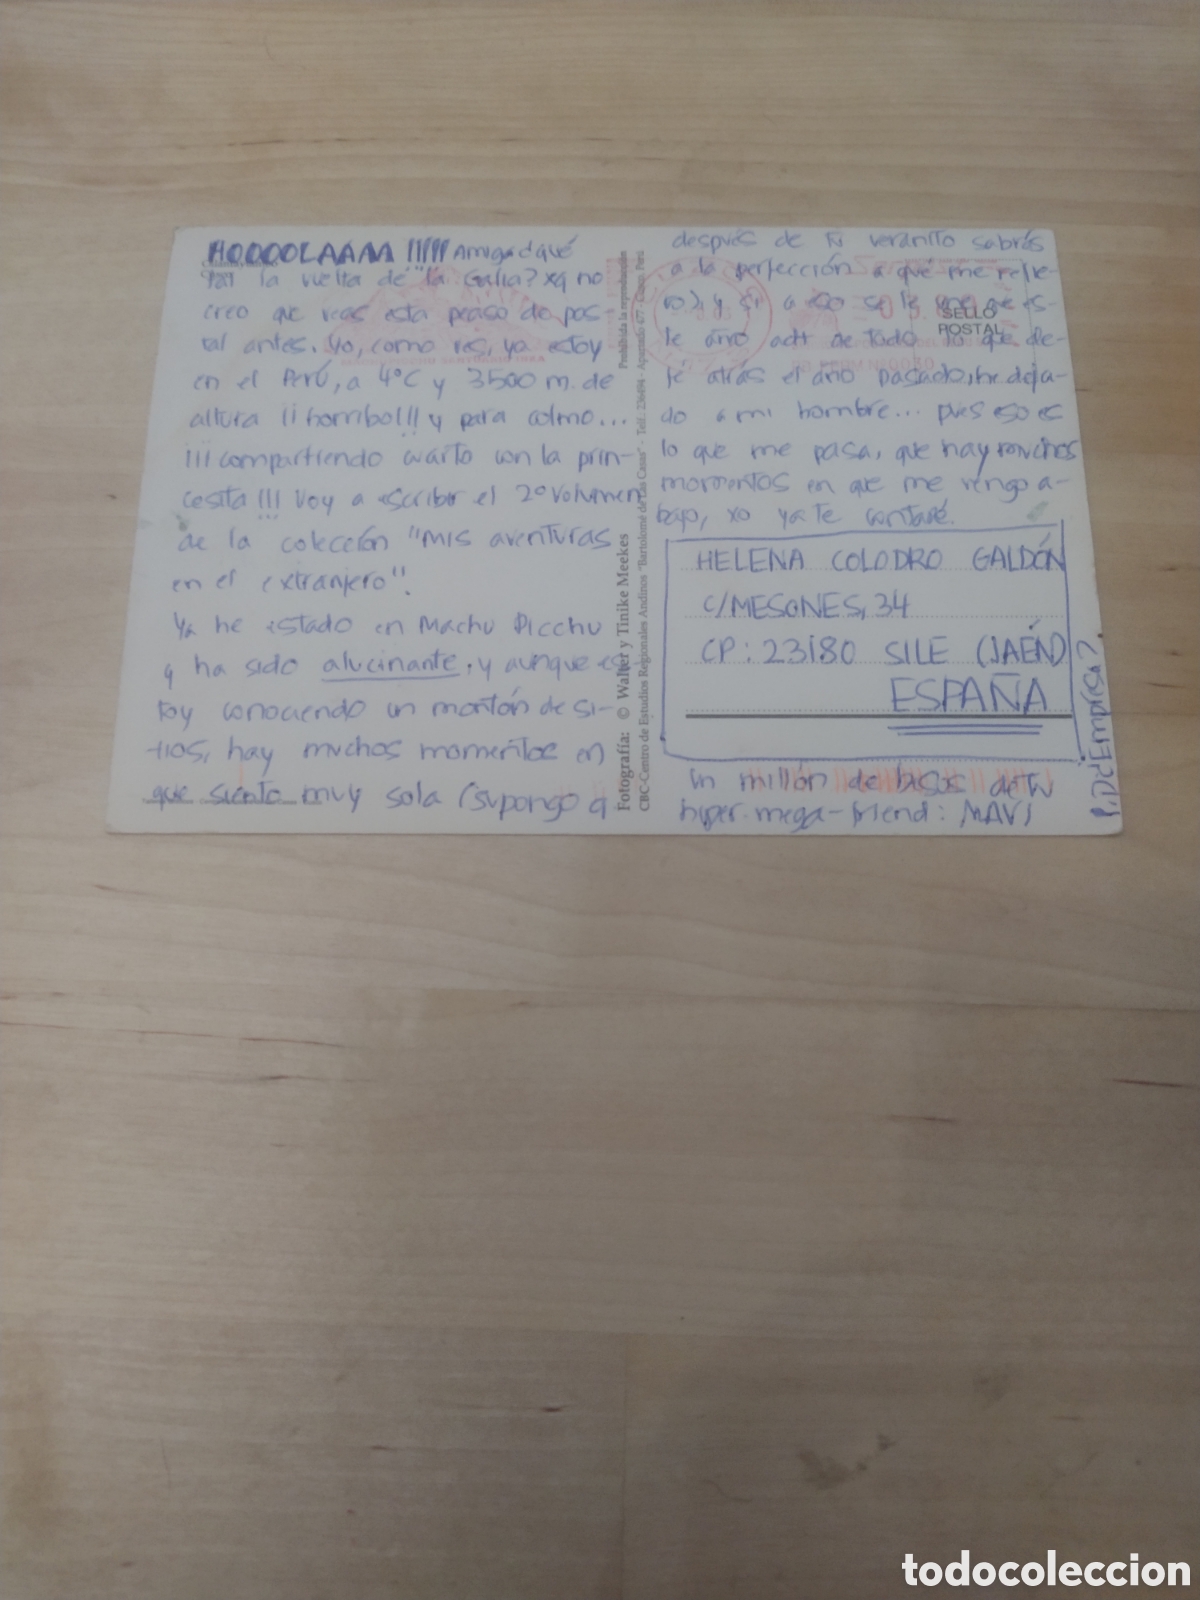 HOOOOLAAAA !!!!! Amiga ¿qué
tal la vuelta de "la Galia? xq no
creo que veas esta peaso de pos
tal antes. Yo, como ves, ya estoy
en el Perú, a 4ºC y 3500 m. de
altura ¡¡horrible!!! y para colmo...
¡¡¡compartiendo cuarto con la prin-
cesita!!! Voy a escribir el 2º volumen
de la colección "Mis aventuras
en el extranjero".
Ya he estado en Machu Picchu
y ha sido alucinante, y aunque es
toy conociendo un montón de si-
tios, hay muchos momentos en
que siento muy sola (supongo q
Fotografía: © Walter y Tinike Meekes
Prohibida la reproducción
CBC-Centro de Estudios Regionales Andinos "Bartolomé de Las Casas" - Telf.: 236494 - Apartado 477 Cusco, Perú
después de tu veranito sabrás
a la perfección a qué me refie-
ro), y si a eso se le une que es-
te año de todo lo que de-
jé atrás el año pasado, he deja-
do a mi hombre... pues eso es
lo que me pasa, que hay muchos
momentos en que me vengo a-
bajo, xo ya te contaré.
SELLO
POSTAL
HELENA COLODRO GALDÓN
C/MESONES, 34
CP: 23180 SILE (JAÉN)
ESPAÑA
Un millón de besos de tu
hiper-mega-friend: MAVI
todocoleccion